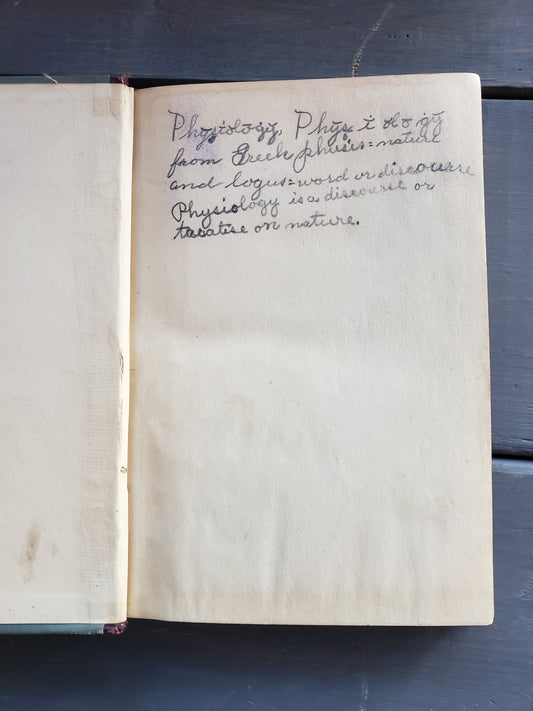 Physiology, Phys i ol o gy
from Greek phusis=nature
and logus=word or discourse
Physiology is a discourse or
treatise on nature.